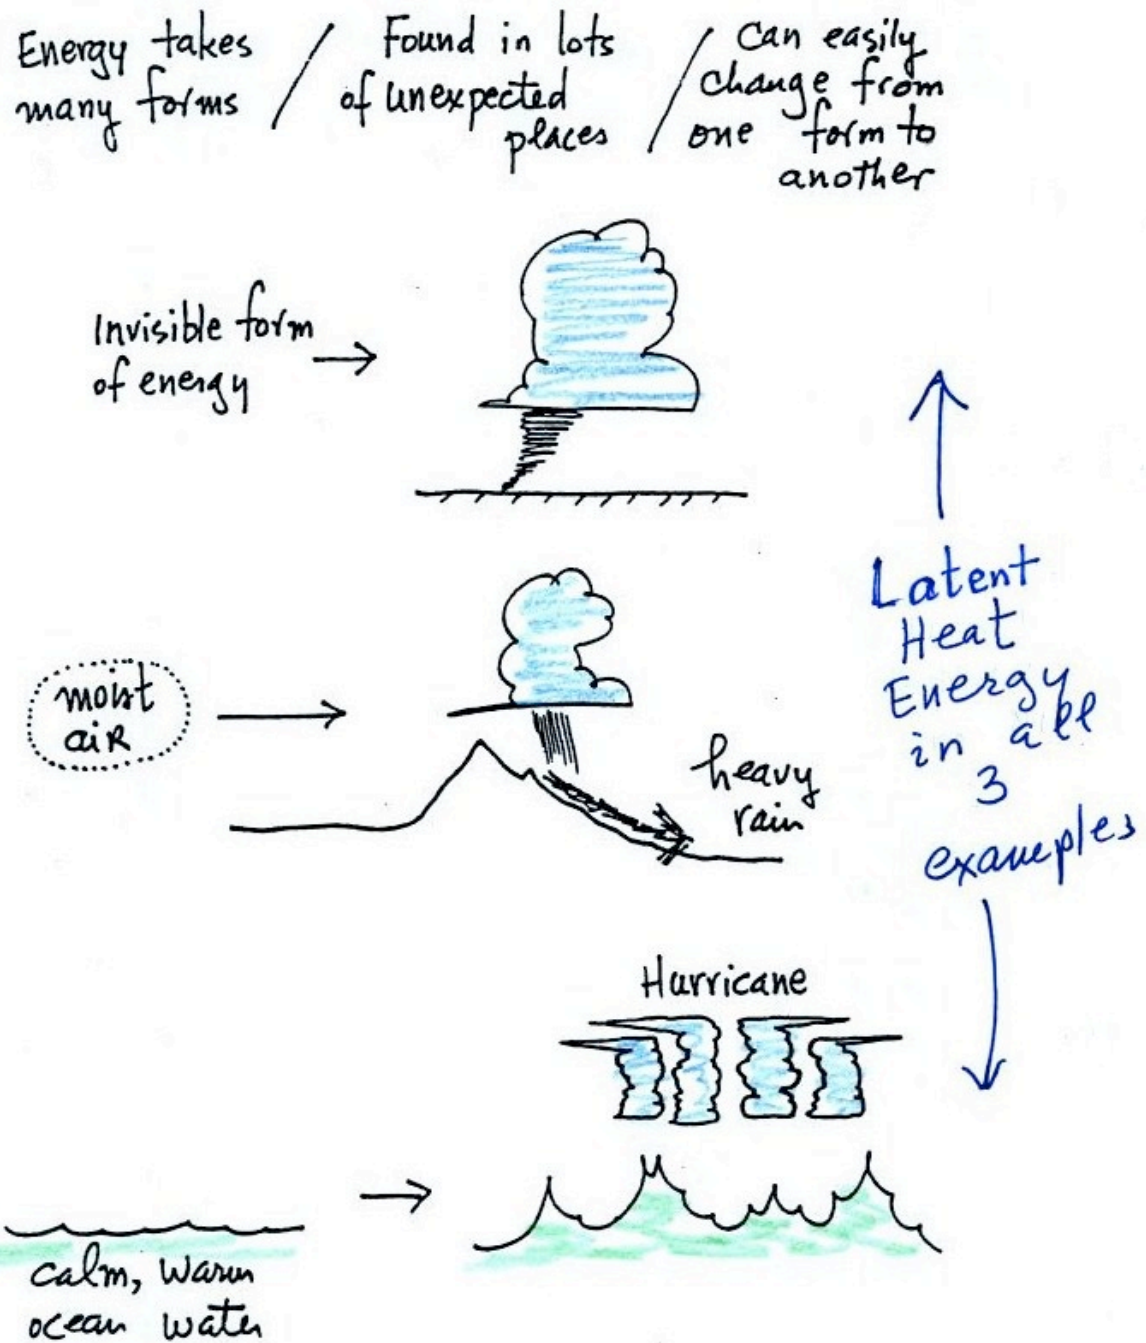 Energy takes
many forms
/
Found in lots
of unexpected
places
/
Can easily
change from
one form to
another
Invisible form
of energy
moist
air
heavy
rain
Latent
Heat
Energy
in all
3
examples
Hurricane
calm, warm
ocean water